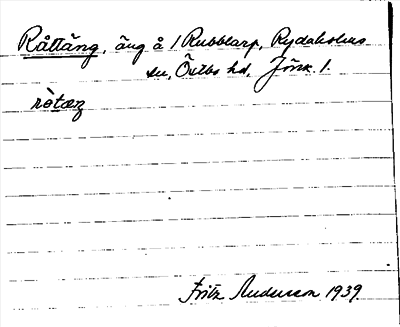 Råttäng, äng å 1 Rubbtarp, Rydaholms
sn, Östbo hd, Jönk. l.
ròtæŋ
Fritz Andersson 1939.